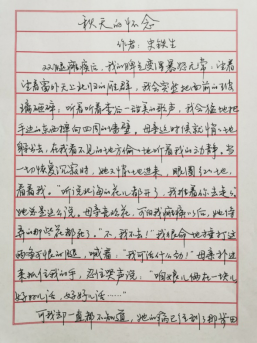 秋天的怀念
作者：史铁生
双腿瘫痪后，我的脾气变得暴怒无常，望着
望着窗外天上北归的雁群，我会突然把面前的玻
璃砸碎；听着听着李谷一甜美的歌声，我会猛地把
手边的东西摔向四周的墙壁。母亲这时候就悄悄地
躲出去，在我看不见的地方偷偷地听着我的动静。当
一切恢复沉寂时，她又悄悄地进来，眼圈红红地，
看着我。“听说北海的花儿都开了，我推着你去走走。”
她总是这么说。母亲喜欢花，可自从我瘫痪以后，她侍
弄的那些花都死了。“不，我不去！”我狠命地捶打这
两条可恨的腿，喊着，“我可活什么劲！”母亲扑过
来抓住我的手，忍住哭声说：“咱娘儿俩在一块儿，
好好儿活，好好儿活……”
可我却一直都不知道，她的病已经到了那步田